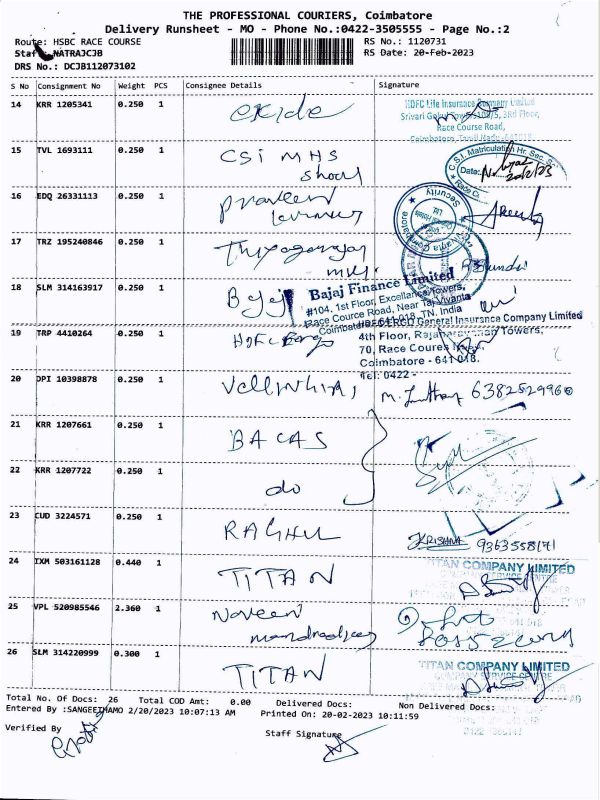 THE PROFESSIONAL COURIERS, Coimbatore
Delivery Runsheet - MO - Phone No.:0422-3505555 - Page No.:2
Route: HSBC RACE COURSE
RS No.: 1120731
Staf NATRAJCJB
RS Date: 20-Feb-2023
DRS No.: DCJB112073102
S No Consignment No Weight PCS Consignee Details Signature
14 KRR 1205341 0.250 1 exide
HDFC Life Insurance Company Limited
3rd Floor,
Race Course Road,
15 TVL 1693111 0.250 1 CSI MHS
C.S.I. Matriculation Hr. Sec.
Date:
16 EDQ 26331113 0.250 1 Praveen
Security
Coimbatore
17 TRZ 195240846 0.250 1 Thiyagarajan
18 SLM 314163917 0.250 1 Bajaj
Bajaj Finance Limited
#104, 1st Floor, Excellance Towers,
Race Cource Road, Near Taj Vivanta
Coimbatore-641 018, TN. India
19 TRP 4410264 0.250 1 HDFC Ergo
HDFC ERGO General Insurance Company Limited
4th Floor, Towers,
70, Race Coures
Coimbatore - 641 018.
Tel: 0422 -
20 DPI 10398878 0.250 1
6382529960
21 KRR 1207661 0.250 1 BACAS
22 KRR 1207722 0.250 1 do
23 CUD 3224571 0.250 1 RAGHU
KRISHNA 9363558171
24 IXM 503161128 0.440 1 TITAN
TITAN COMPANY LIMITED
25 VPL 520985546 2.360 1 Naveen
26 SLM 314220999 0.300 1 TITAN
TITAN COMPANY LIMITED
Total No. Of Docs: 26 Total COD Amt: 0.00 Delivered Docs: Non Delivered Docs:
Entered By :SANGEETHAMO 2/20/2023 10:07:13 AM Printed On: 20-02-2023 10:11:59
Verified By
Staff Signature